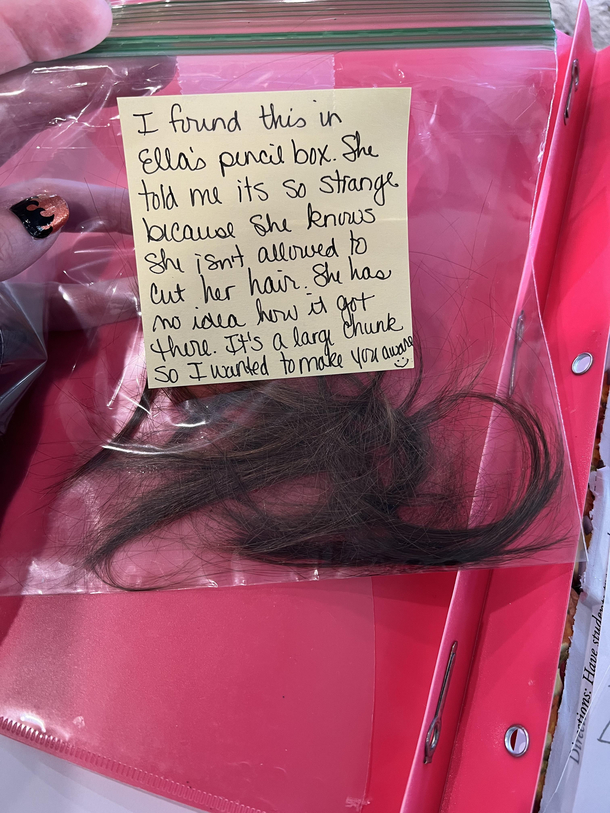 I found this in
Ella's pencil box. She
told me its so strange
because she knows
she isn't allowed to
cut her hair. She has
no idea how it got
there. It's a large chunk
so I wanted to make you aware
Directions: Have studen